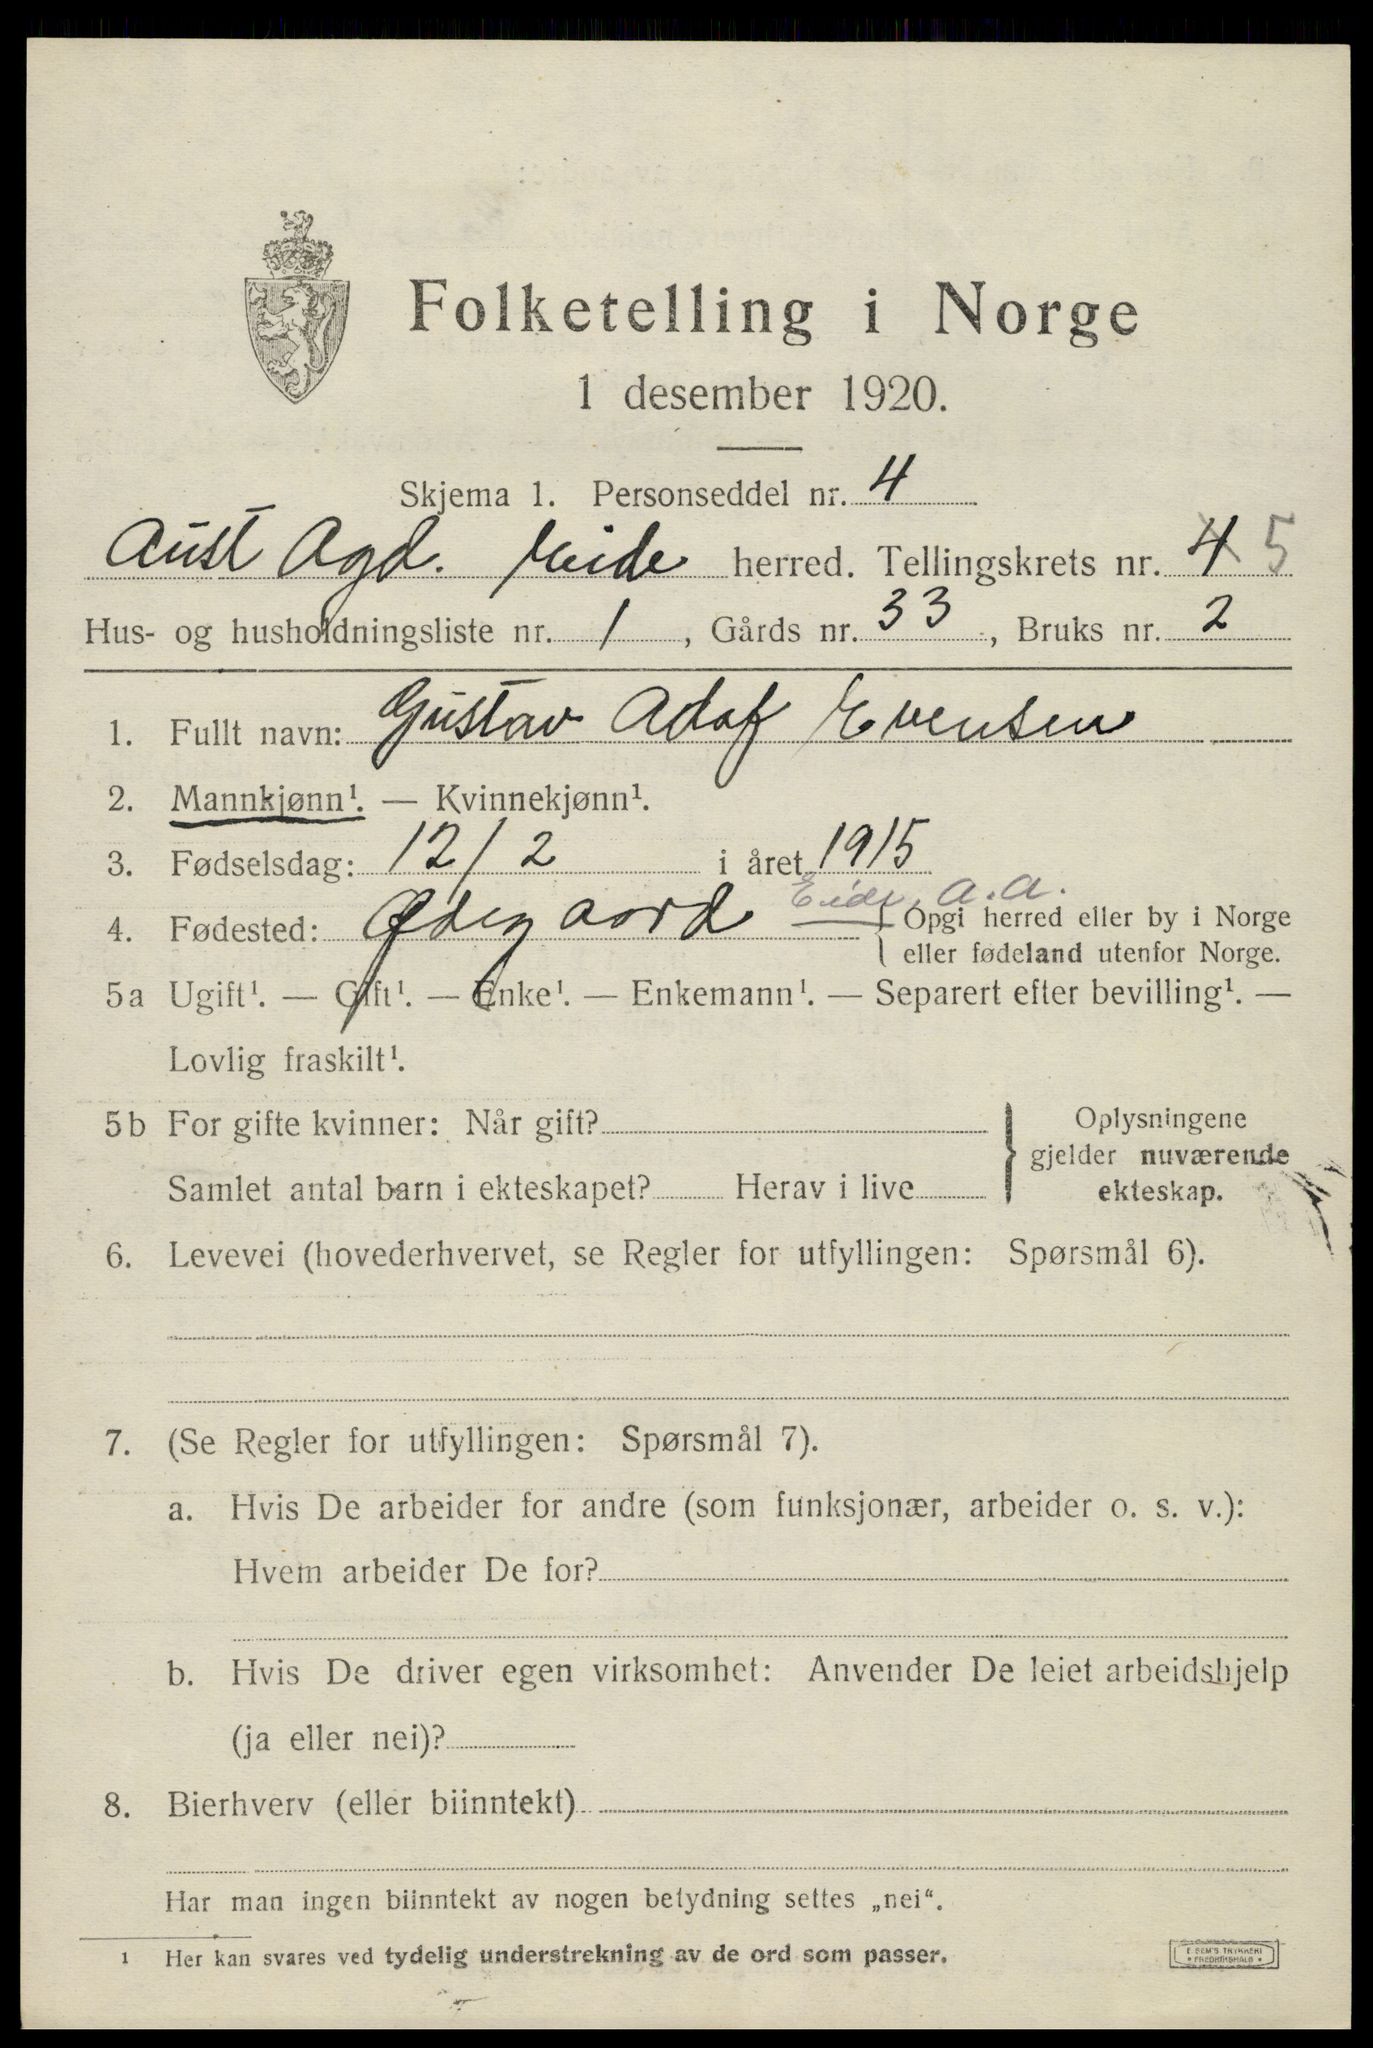 Folketelling i Norge
1 desember 1920.
Skjema 1. Personseddel nr. 4
Aust Agd. Eide herred. Tellingskrets nr. 4 5
Hus- og husholdningsliste nr. 1, Gårds nr. 33, Bruks nr. 2
1. Fullt navn: Gustav Adolf Evensen
2. Mannkjønn¹. — Kvinnekjønn¹.
3. Fødselsdag: 12/2 i året 1915
4. Fødested: Ødegaard Eide, A.A. Opgi herred eller by i Norge
eller fødeland utenfor Norge.
5a Ugift¹. — Gift¹. — Enke¹. — Enkemann¹. — Separert efter bevilling¹. —
Lovlig fraskilt¹.
5b For gifte kvinner: Når gift?
Samlet antal barn i ekteskapet? Herav i live
Oplysningene
gjelder nuværende
ekteskap.
6. Levevei (hovederhvervet, se Regler for utfyllingen: Spørsmål 6).
7. (Se Regler for utfyllingen: Spørsmål 7).
a. Hvis De arbeider for andre (som funksjonær, arbeider o. s. v.):
Hvem arbeider De for?
b. Hvis De driver egen virksomhet: Anvender De leiet arbeidshjelp
(ja eller nei)?
8. Bierhverv (eller biinntekt)
Har man ingen biinntekt av nogen betydning settes „nei“.
1 Her kan svares ved tydelig understrekning av de ord som passer.
E. SEM'S TRYKKERI
FREDRIKSHALD